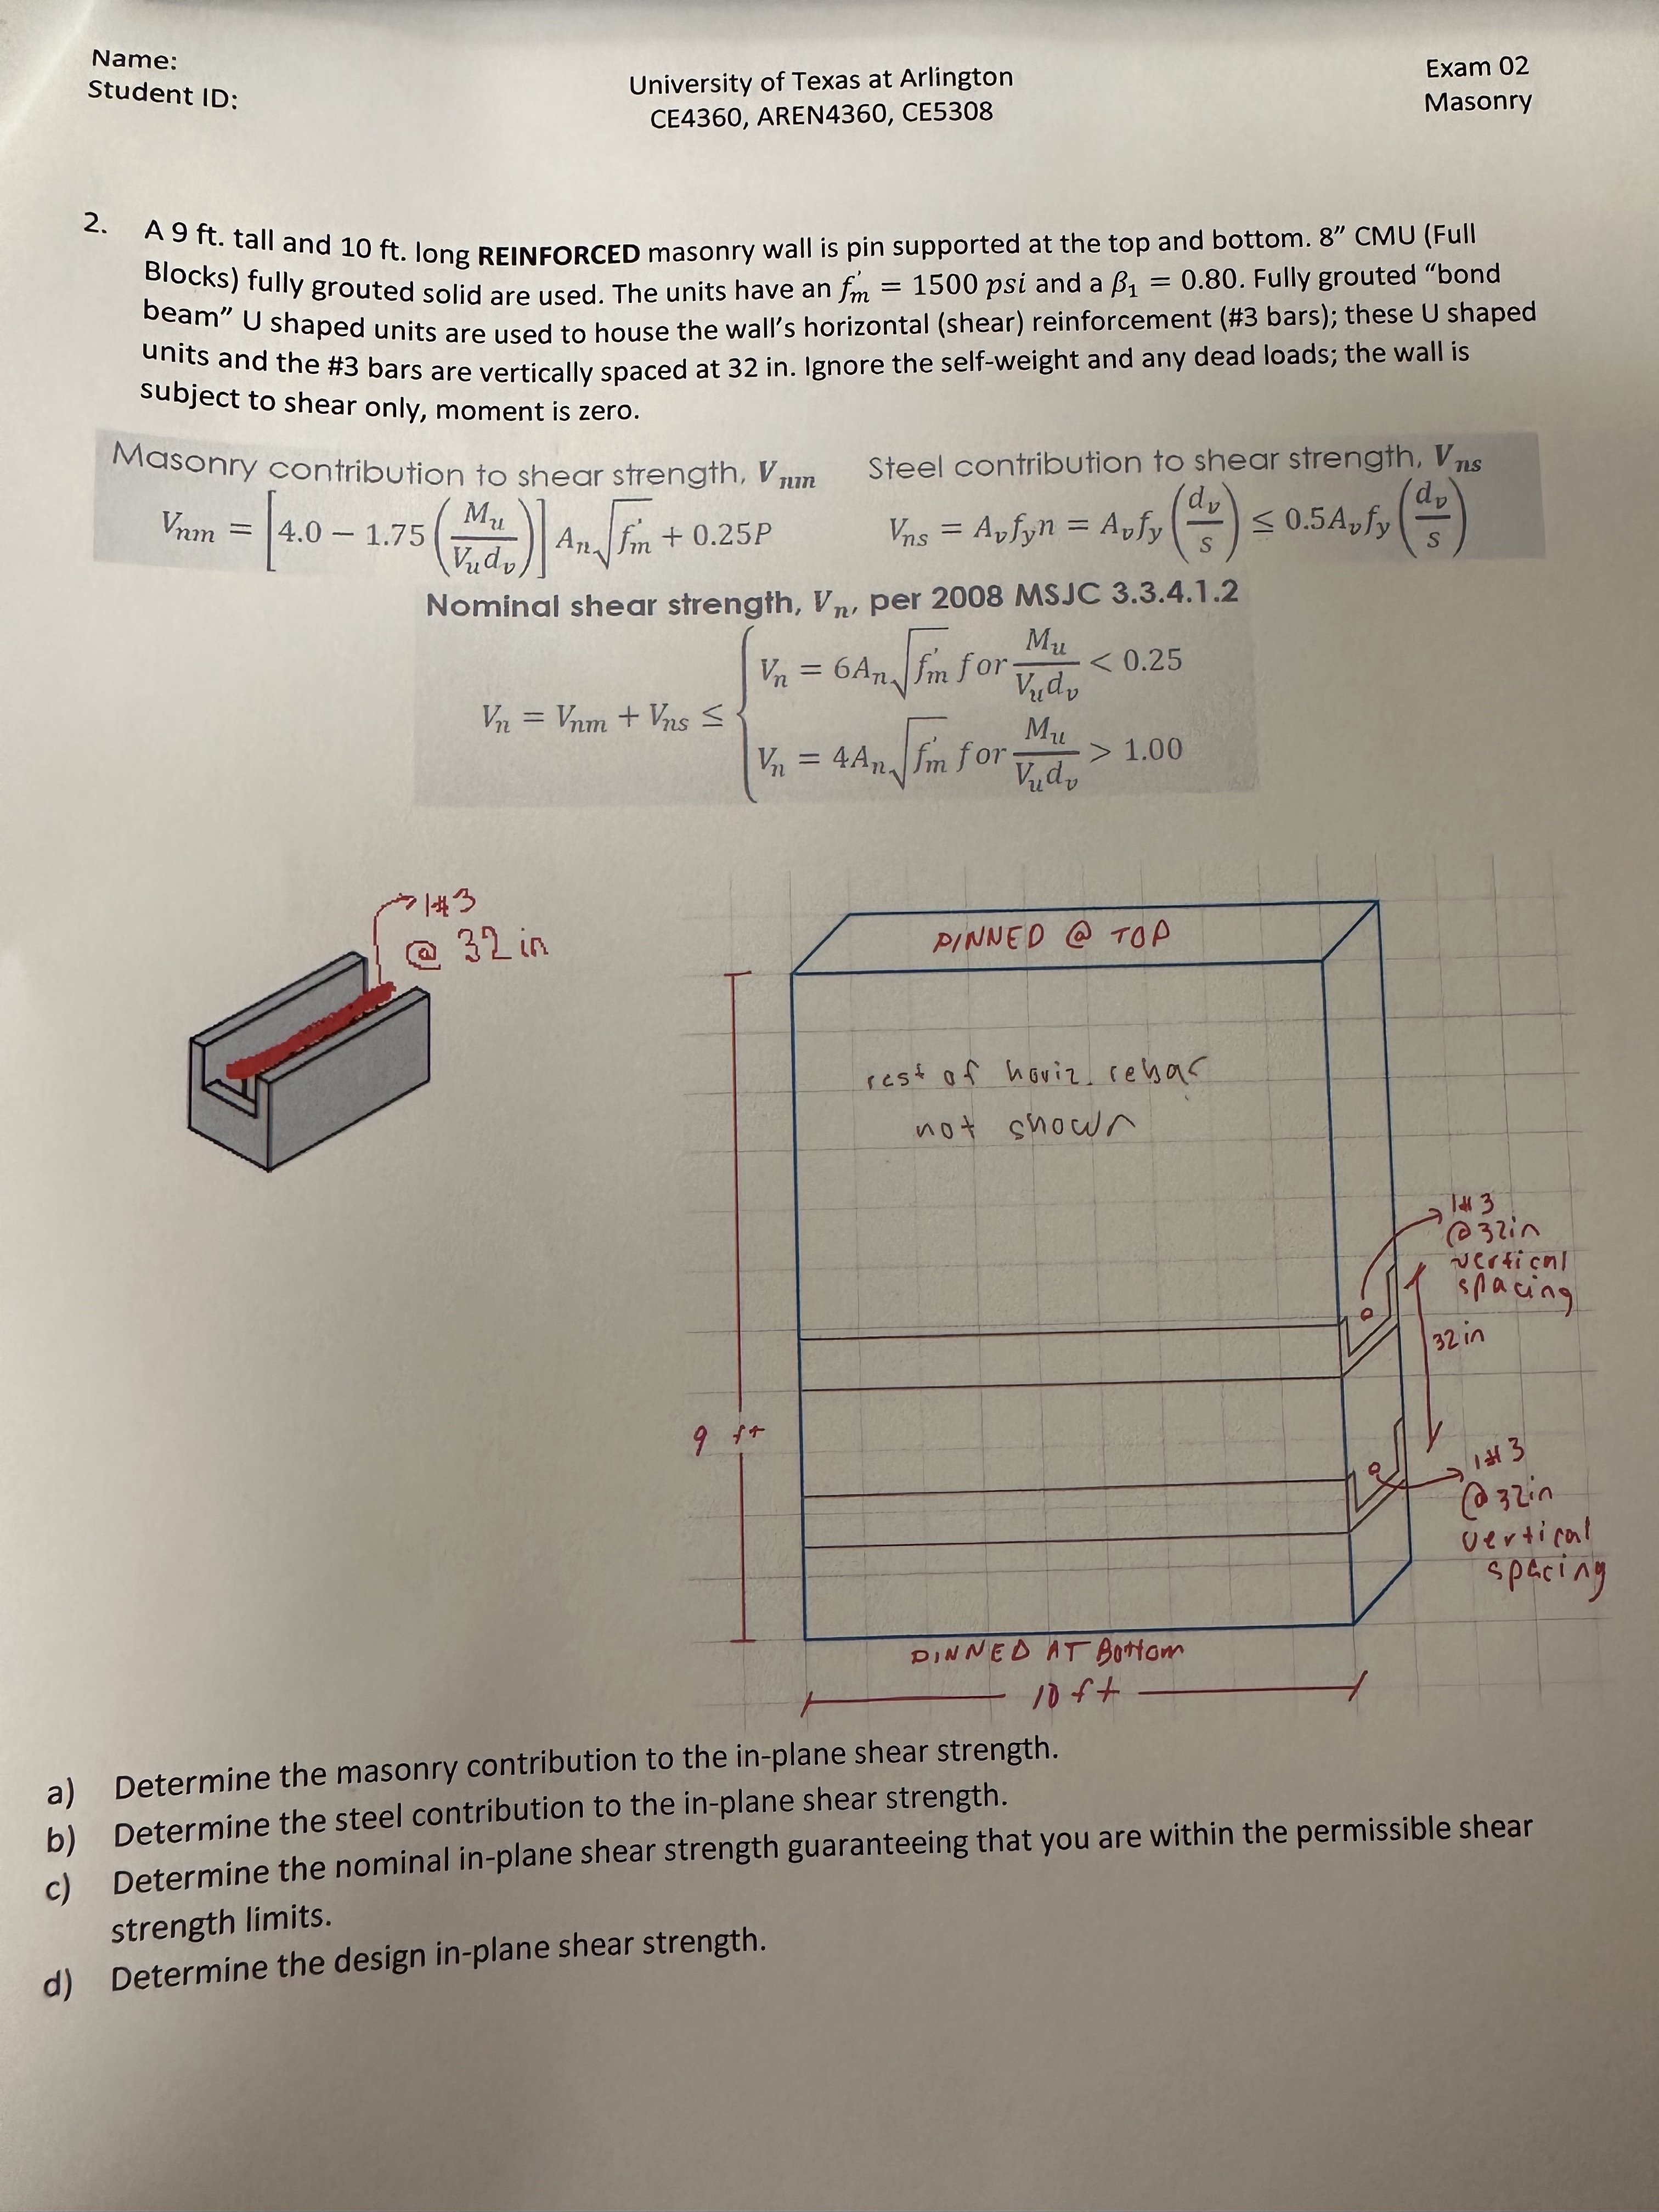 Name:
Student ID:
University of Texas at Arlington
CE4360, AREN4360, CE5308
Exam 02
Masonry
2. A 9 ft. tall and 10 ft. long REINFORCED masonry wall is pin supported at the top and bottom. 8” CMU (Full
Blocks) fully grouted solid are used. The units have an f'm = 1500 psi and a β1 = 0.80. Fully grouted “bond
beam” U shaped units are used to house the wall’s horizontal (shear) reinforcement (#3 bars); these U shaped
units and the #3 bars are vertically spaced at 32 in. Ignore the self-weight and any dead loads; the wall is
subject to shear only, moment is zero.
Masonry contribution to shear strength, Vnm
Vnm = [4.0 − 1.75 (Mu / Vu dv)] An √f'm + 0.25P
Steel contribution to shear strength, Vns
Vns = Av fy n = Av fy (dv / s) ≤ 0.5 Av fy (dv / s)
Nominal shear strength, Vn, per 2008 MSJC 3.3.4.1.2
Vn = Vnm + Vns ≤ {
Vn = 6An √f'm for Mu / Vu dv < 0.25
Vn = 4An √f'm for Mu / Vu dv > 1.00
1#3
@ 32 in
PINNED @ TOP
rest of horiz. rebar
not shown
1#3
@32in
vertical
spacing
32in
9 ft
1#3
@32in
vertical
spacing
PINNED AT Bottom
10 ft
a) Determine the masonry contribution to the in-plane shear strength.
b) Determine the steel contribution to the in-plane shear strength.
c) Determine the nominal in-plane shear strength guaranteeing that you are within the permissible shear
strength limits.
d) Determine the design in-plane shear strength.